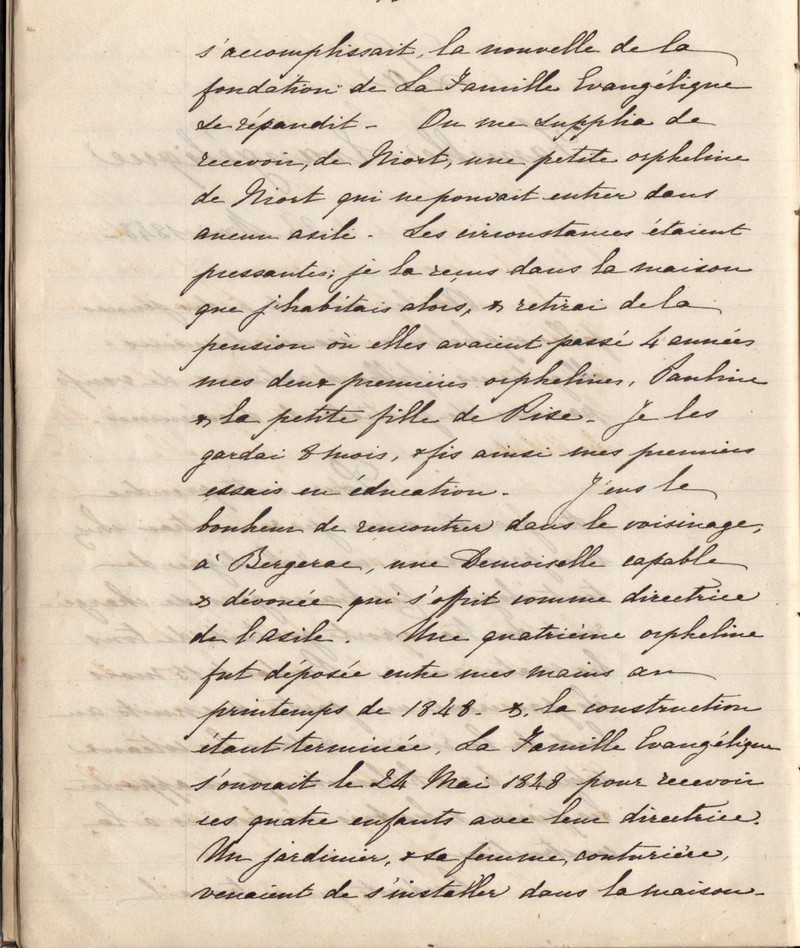 s'accomplissait, la nouvelle de la
fondation de La Famille Evangélique
se répandit - On me supplia de
recevoir, de Niort, une petite orpheline
de Niort qui ne pouvait entrer dans
aucun asile. Les circonstances étaient
pressantes; je la reçus dans la maison
que j'habitais alors, & retirai de la
pension où elles avaient passé 4 années
mes deux premières orphelines, Pauline
& la petite fille de Pise. Je les
gardai 8 mois, & fis ainsi mes premiers
essais en éducation. J'eus le
bonheur de rencontrer dans le voisinage,
à Bergerac, une Demoiselle capable
& dévouée qui s'offrit comme directrice
de l'asile. Une quatrième orpheline
fut déposée entre mes mains au
printemps de 1848 - &, la construction
étant terminée, La Famille Evangélique
s'ouvrait le 24 Mai 1848 pour recevoir
ces quatre enfants avec leur directrice.
Un jardinier, & sa femme, couturière,
venaient de s'installer dans la maison -